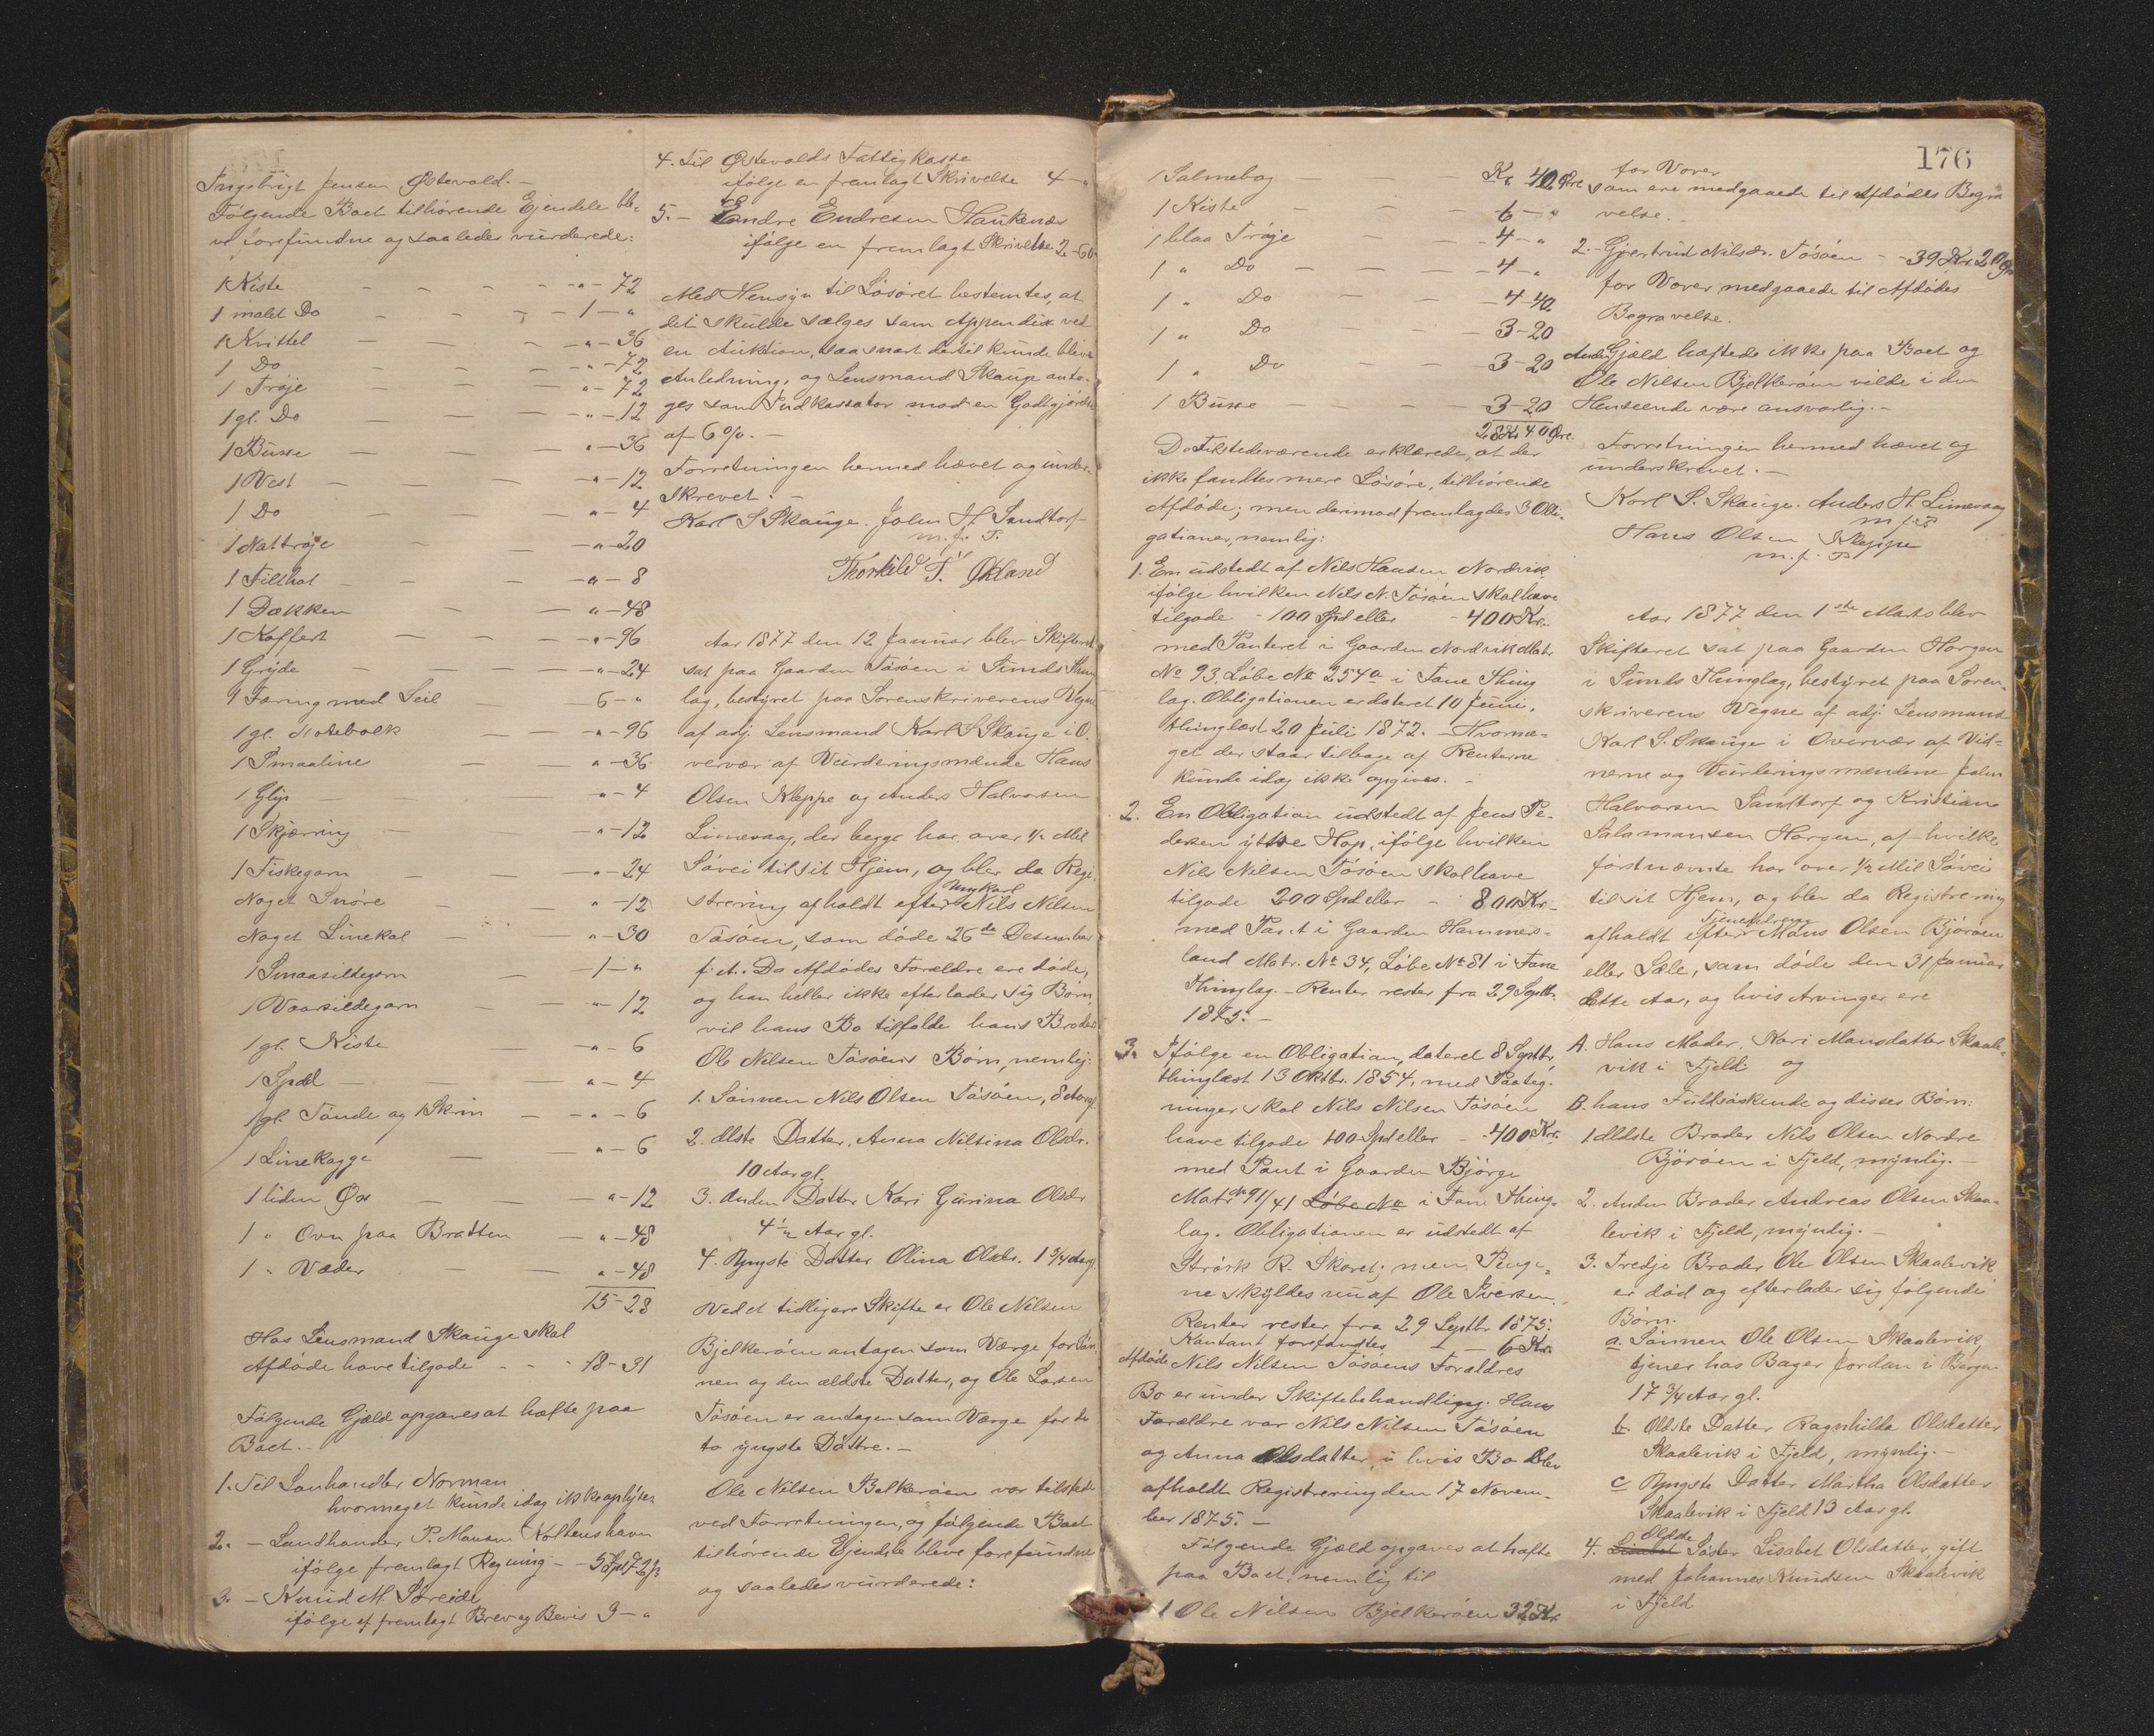 Ingebrigt Jensen Østevold.-
Følgende Boet tilhørende Ejendele ble-
ve forefundne og saaledes vurderede:
1 Kiste - - - - - " - 72
1 malet Do - - - - 1 - "
1 Kvittel - - - - " - 36
1 Do - - - - " - 72
1 Trøje - - - " - 72
1 gl. Do - - - " - 12
1 Buxe - - - " - 36
1 Vest - - - - " - 12
1 Do - - - " - 4
1 Nattrøje - - " - 20
1 Filthat - - - " - 8
1 Dækken - - " - 48
1 Koffert - - - - " - 96
1 Gryde - - - - " - 24
1 Færing med Seil - - 6 - "
1 gl. Notebolk - - " - 96
1 Smaaline - - " - 36
1 Glip - - " - 4
1 Skjæring - - " - 12
1 Fiskegarn - - " - 24
Noget Snøre - - " - 12
Noget Linekal - - " - 30
1 Smaasildegarn - 1 - "
1 Vaarsildegarn - - " - 12
1 gl. Kiste - " - 6
1 Spæl - - " - 4
1 gl. Tønde og 1 Skrin - " - 6
1 Linekagge - - " - 6
1 liden Øx - - " - 12
1 " Ovn paa Bratten - " - 48
1 " Væder - - " - 48
15 - 28
Hos Lensmand Skauge skal
Afdøde have tilgode - - - 18 - 91
Følgende Gjæld opgaves at hæfte paa
Boet.-
1. Til Lanhandler Norman
hvormeget kunde idag ikke oplyses
2. - Landhandler P. Mansen Kolbenshavn
ifølge fremlagt Regning - - 5 Spd 72 ß
3. - Knud M. Søreide
ifølge et fremlagt Brev og Bevis 9 - "
4. Til Østevolds Fattigkasse
ifølge en fremlagt Skrivelse 4 - "
5. - Endre Endresen Haukenæs
ifølge en fremlagt Skrivelse 2 - 60
Med Hensyn til Løsøret bestemtes, at
det skulde sælges som Appendix ved
en Auktion, saasnart dertil kunde blive
Anledning, og Lensmand Skauge anto-
ges som Indkassator mod en Godtgjørelse
af 6 %. -
Forretningen hermed hævet og under-
skrevet. -
Karl S Skauge. John H. Sandtorf
m. f. P.
Thorkild T. Økland
Aar 1877 den 12 Januar blev Skifteret
sat paa Gaarden Tøsøen i Sunds Thing
lag, bestyret paa Sorenskriverens Vegne
af adj. Lensmand Karl S Skauge i O-
vervær af Vurderingsmændene Hans
Olsen Kleppe og Anders Halvorsen
Linnevaag, der begge har over 1/2 Mil
Søvei til sit Hjem, og blev da Regi-
strering afholdt efter Ungkarl Nils Nilsen
Tøsøen, som døde 26de Desember
f. A. Da Afdødes Forældre ere døde,
og han heller ikke efterlader sig Børn,
vil hans Bo tilfalde hans Broder
Ole Nilsen Tøsøens Børn, nemlig:
1. Sønnen Nils Olsen Tøsøen, 8 Aar gl.
2. ælste Datter, Anna Nilsina Olsdr.
10 Aar gl.
3. Anden Datter Kari Gurina Olsdr
4 1/2 Aar gl.
4. Yngste Datter Olina Olsdr. 1 3/4 Aar gl.
Ved et tidligere Skifte er Ole Nilsen
Bjelkerøen antagen som Værge for Søn-
nen og den ældste Datter, og Ole Larsen
Tøsøen er antagen som Værge for de
to yngste Døttre. -
Ole Nilsen Belkerøen var tilstede
ved Forretningen, og følgende Boet
tilhørende Ejendele bleve forefundne
og saaledes vurderede:
1 Salmebog - - - Kr. 40 Øre
1 Kiste - - - 6 - "
1 blaa Trøje - - 4 - "
1 " Do - - - - 4 - "
1 " Do - - - 4 - 40
1 " Do - - - 3 - 20
1 " Do - - - 3 - 20
1 Buxe - - - 3 - 20
28 Kr 40 Øre.
De Tilstedeværende erklærede, at der
ikke fandtes mere Løsøre, tilhørende
Afdøde; men derimod fremlagdes 3 Obli-
gationer, nemlig:
1. En udstedt af Nils Hansen Nordvik
ifølge hvilken Nils N. Tøsøen skal have
tilgode - 100 Spd eller - 400 Kr.
med Panteret i Gaarden Nordvik Matr.
No 93, Løbe No 254a i Fane Thing
lag. Obligationen er dateret 10 Juni,
thinglæst 20 Juli 1872. - Hvorme-
get der staar tilbage af Renterne
kunde idag ikke opgives. -
2. En Obligation udstedt af Jens Pe-
dersen ytre Hop, ifølge hvilken
Nils Nilsen Tøsøen skal have
tilgode 200 Spd eller - 800 Kr -
med Pant i Gaarden Hammers-
land Matr. No 34, Løbe No 81 i Fane
Thinglag. - Renter rester fra 29 Septbr.
1875. -
3. Ifølge en Obligation, dateret 8 Septbr,
thinglæst 13 Oktbr. 1854, med Paateg-
ninger skal Nils Nilsen Tøsøen
have tilgode 100 Spd eller - 400 Kr.
med Pant i Gaarden Bjørge
Matr No 91/41 Løbe No i Fane Thing-
lag. Obligationen er udstedt af
Størk R. Skaret; men Penge-
ne skyldes nu af Ole Iversen.
Renter rester fra 29 Septbr 1875.
Kontant forefandtes - - 6 Kr.
Afdøde Nils Nilsen Tøsøens Forældres
Bo er under Skiftebehandling. Hans
Forældre var Nils Nilsen Tøsøen
og Anna Olsdatter, i hvis Bo blev
afholdt Registrering den 17 Novem-
ber 1875. -
Følgende Gjæld opgaves at hæfte
paa Boet, nemlig til
1 Ole Nilsen Bjelkerøen 32 Kr.
176
for Varer
som ere medgaaede til Afdødes Begra
velse. -
2. - Gjertrud Nilsdr. Tøsøen - - 39 Kr. 20 Øre
for Varer medgaaede til Afdødes
Begravelse.
Anden Gjæld hæftede ikke paa Boet og
Ole Nilsen Bjelkerøen vilde i den
Henseende være ansvarlig. -
Forretningen hermed hævet og
underskrevet. -
Karl S. Skauge. Anders H. Linnevaag
m. f. P.
Hans Olsen Kleppe
m. f. P
Aar 1877 den 1ste Marts blev
Skifteret sat paa Gaarden Horgen
i Sunds Thinglag, bestyret paa Soren-
skriverens Vegne af adj. Lensmand
Karl S. Skauge i Overvær af Vid-
nerne og Vurderingsmændene John
Halvorsen Sandtorf og Kristian
Salamonsen Horgen, af hvilke
førstnævnte har over 1/2 Mil Søvei
til sit Hjem, og blev da Registrering
afholdt efter Tjenesdreng Mons Olsen Bjørøen
eller Sæle, som døde den 31 Januar
dette Aar, og hvis Arvinger ere
A. Hans Moder, Kari Monsdatter Skaale-
vik i Fjeld og
B. hans Fuldsøskende og disses Børn:
1 ældste Broder Nils Olsen Nordre
Bjørøen i Fjeld, myndig. -
2. Anden Broder Andreas Olsen Skaa-
levik i Fjeld, myndig. -
3. Tredje Broder Ole Olsen Skaalevik
er død og efterlader sig følgende
Børn.
a. Sønnen Ole Olsen Skaalevik,
tjener hos Bager Jordan i Bergen
17 3/4 Aar gl.
b. Ældste Datter Ragnhilda Olsdatter
Skaalevik i Fjeld, myndig. -
c Yngste Datter Martha Olsdatter
Skaalevik i Fjeld 13 Aar gl.
4. Lisabet Ældste Søster Lisabet Olsdatter, gift
med Johannes Knudsen Skaalevik
i Fjeld